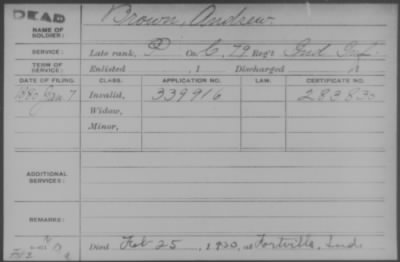 DEAD
NAME OF SOLDIER: Brown, Andrew
SERVICE: Late rank, P Co. C, 79 Reg't Ind Inf.
TERM OF SERVICE: Enlisted , 1 Discharged , 1
DATE OF FILING. CLASS. APPLICATION NO. LAW. CERTIFICATE NO.
1880 Jan 7 Invalid, 339916 283835
Widow,
Minor,
ADDITIONAL SERVICES:
REMARKS:
Died Feb 25, 1930, at Fortville, Ind